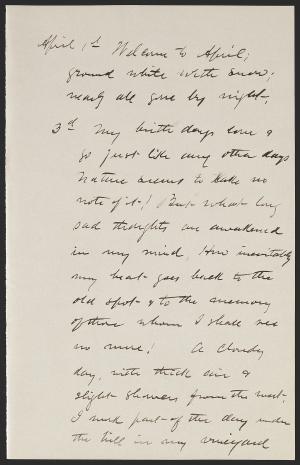 April 1st Welcome to April;
ground white with snow;
nearly all gone by night.
3d My birth days come &
go just like any other days
Nature seems to take no
note of it! But what long
sad thoughts are awakened
in my mind, How inevitably
my heart goes back to the
old spot & to the memory
of those whom I shall see
no more! A cloudy
day, with thick air &
slight showers from the west.
I work part of the day under
the hill in my vineyard